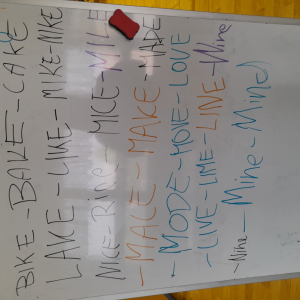 BIKE-BAKE-CAKE
LAKE-LIKE-MIKE-NIKE
NICE-RICE-MICE-MILE
-MALE-MAKE-MADE
-MODE-MOVE-LOVE
-LIVE-LIME-LINE-Nine
-Nine-Mine-Mind